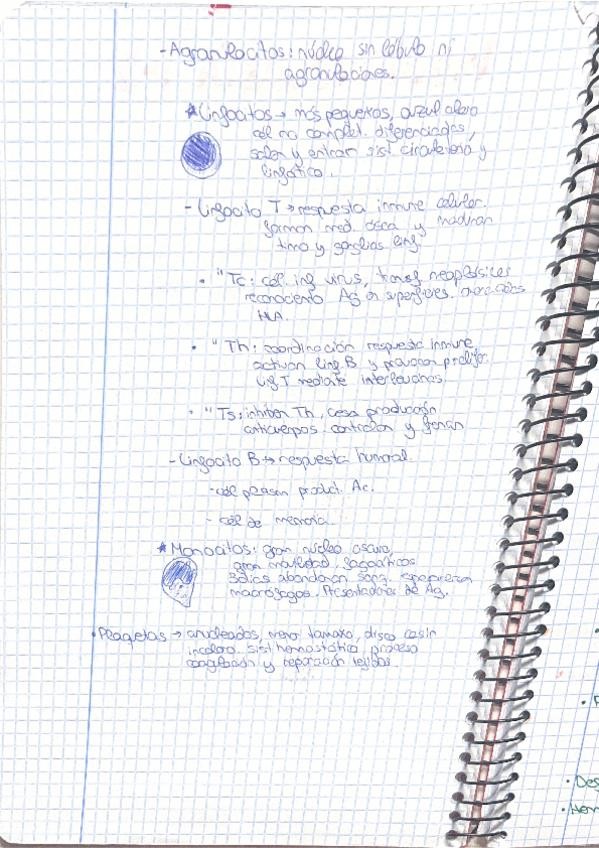 - Agranulocitos: núcleo sin lóbulo ni
agranulaciones.
* Linfocitos → más pequeños, azul
cél no complet. diferenciadas,
salen y entran sist circulatorio y
linfático.
- Linfocito T → respuesta inmune celular.
forman med. ósea y maduran
timo y ganglios linf.
• " Tc: cél. inf virus, transf neoplásicas
reconociento Ag en superficies.
HLA.
• " Th: coordinación respuesta inmune,
activan linf. B y provocan prolif.
Linf T mediate interleucinas.
• " Ts: inhiben Th, cesa producción
anticuerpos. controlan y frenan
- Linfocito B → respuesta humoral.
- cél plasm product. Ac.
- cél de memoria.
* Monocitos: gran núcleo oscuro,
gran movilidad, fagocíticos
3 días abandonan sang.
macrófagos. Presentadores de Ag.
• Plaquetas → anucleados, menor tamaño, disco casi
incoloro. sist hemostático, proceso
coagulación y reparación tejidos.
• Des
• Hem